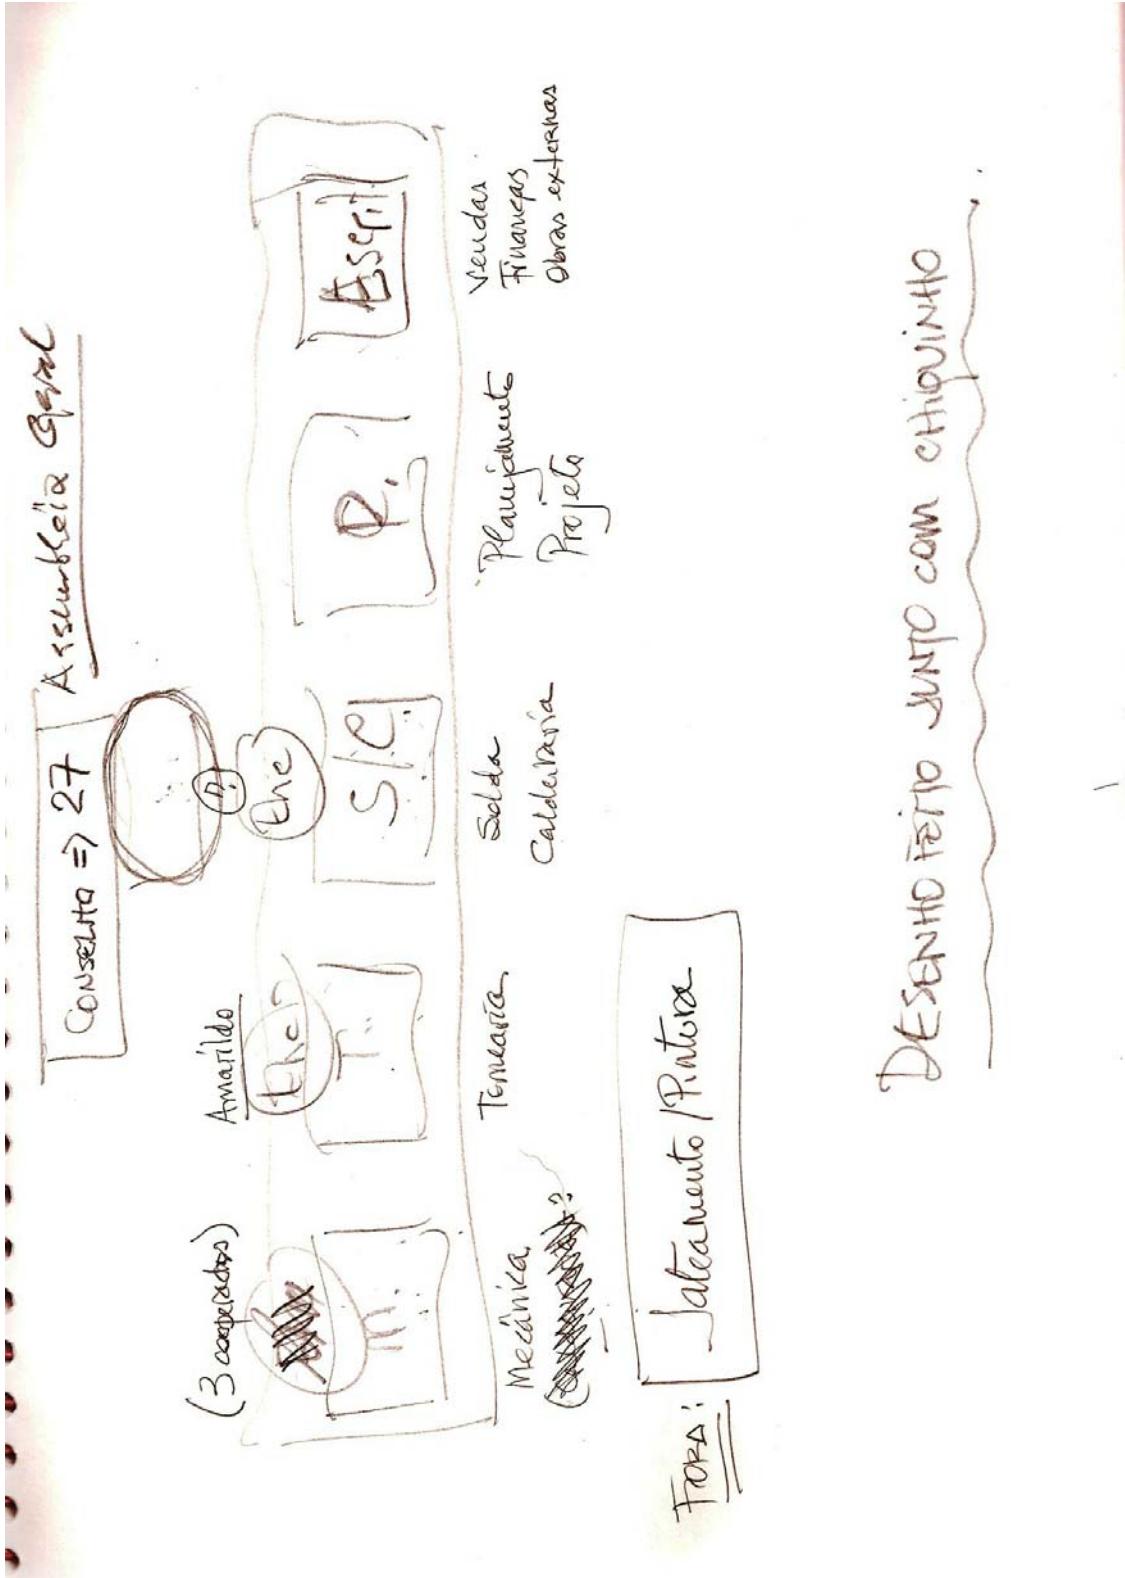 Assembléia Geral
CONSELHO => 27
(3 cooperados)
Amarildo
the
the
M.
T.
S/C.
P.
Escri
Mecânica
Tornearia
Solda
Caldeiraria
Planejamento
Projeto
Vendas
Finanças
Obras externas
FORA:
Jateamento/Pintura
DESENHO FEITO JUNTO COM CHIQUINHO